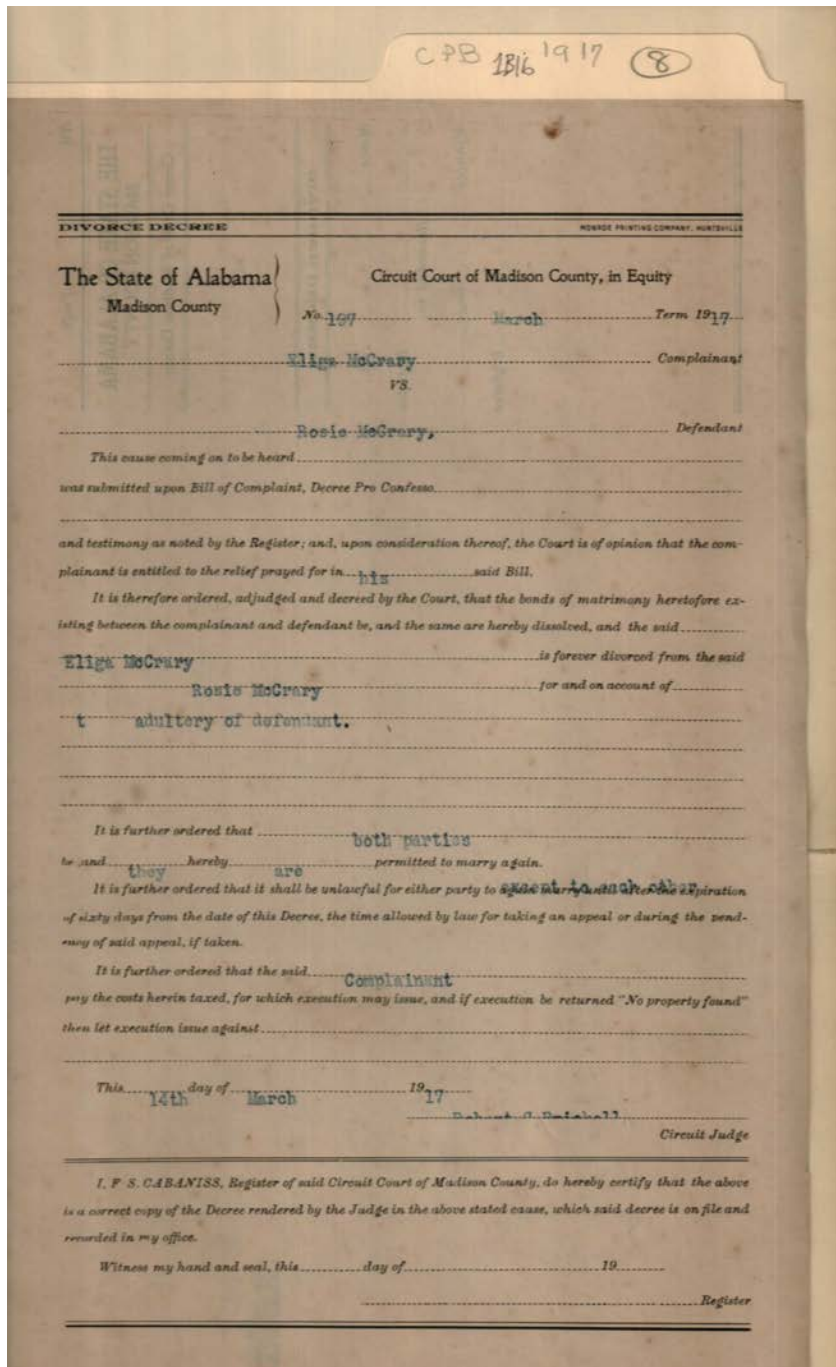 CPB 1B16 1917 8
DIVORCE DECREE MONROE PRINTING COMPANY, HUNTSVILLE
The State of Alabama Circuit Court of Madison County, in Equity
Madison County No. 197 March Term 1917
Eliga McCrary Complainant
VS.
Rosie McCrary, Defendant
This cause coming on to be heard
was submitted upon Bill of Complaint, Decree Pro Confesso
and testimony as noted by the Register; and, upon consideration thereof, the Court is of opinion that the com-
plainant is entitled to the relief prayed for in his said Bill.
It is therefore ordered, adjudged and decreed by the Court, that the bonds of matrimony heretofore ex-
isting between the complainant and defendant be, and the same are hereby dissolved, and the said
Eliga McCrary is forever divorced from the said
Rosie McCrary for and on account of
t adultery of defendant.
It is further ordered that both parties
be and they hereby are permitted to marry again.
It is further ordered that it shall be unlawful for either party to except to each other expiration
of sixty days from the date of this Decree, the time allowed by law for taking an appeal or during the pend-
ency of said appeal, if taken.
It is further ordered that the said Complainant
pay the costs herein taxed, for which execution may issue, and if execution be returned "No property found"
then let execution issue against
This 14th day of March 1917
Circuit Judge
I, F S. CABANISS, Register of said Circuit Court of Madison County, do hereby certify that the above
is a correct copy of the Decree rendered by the Judge in the above stated cause, which said decree is on file and
recorded in my office.
Witness my hand and seal, this day of 19
Register